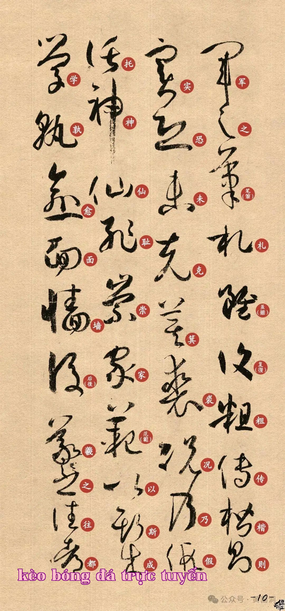 军之笔札虽复粗传楷则
实恐未克箕裘况乃假
托神仙耻崇家范以斯成
学孰愈面墙后羲之往都
kèo bóng đá trực tuyến
公众号
-10-